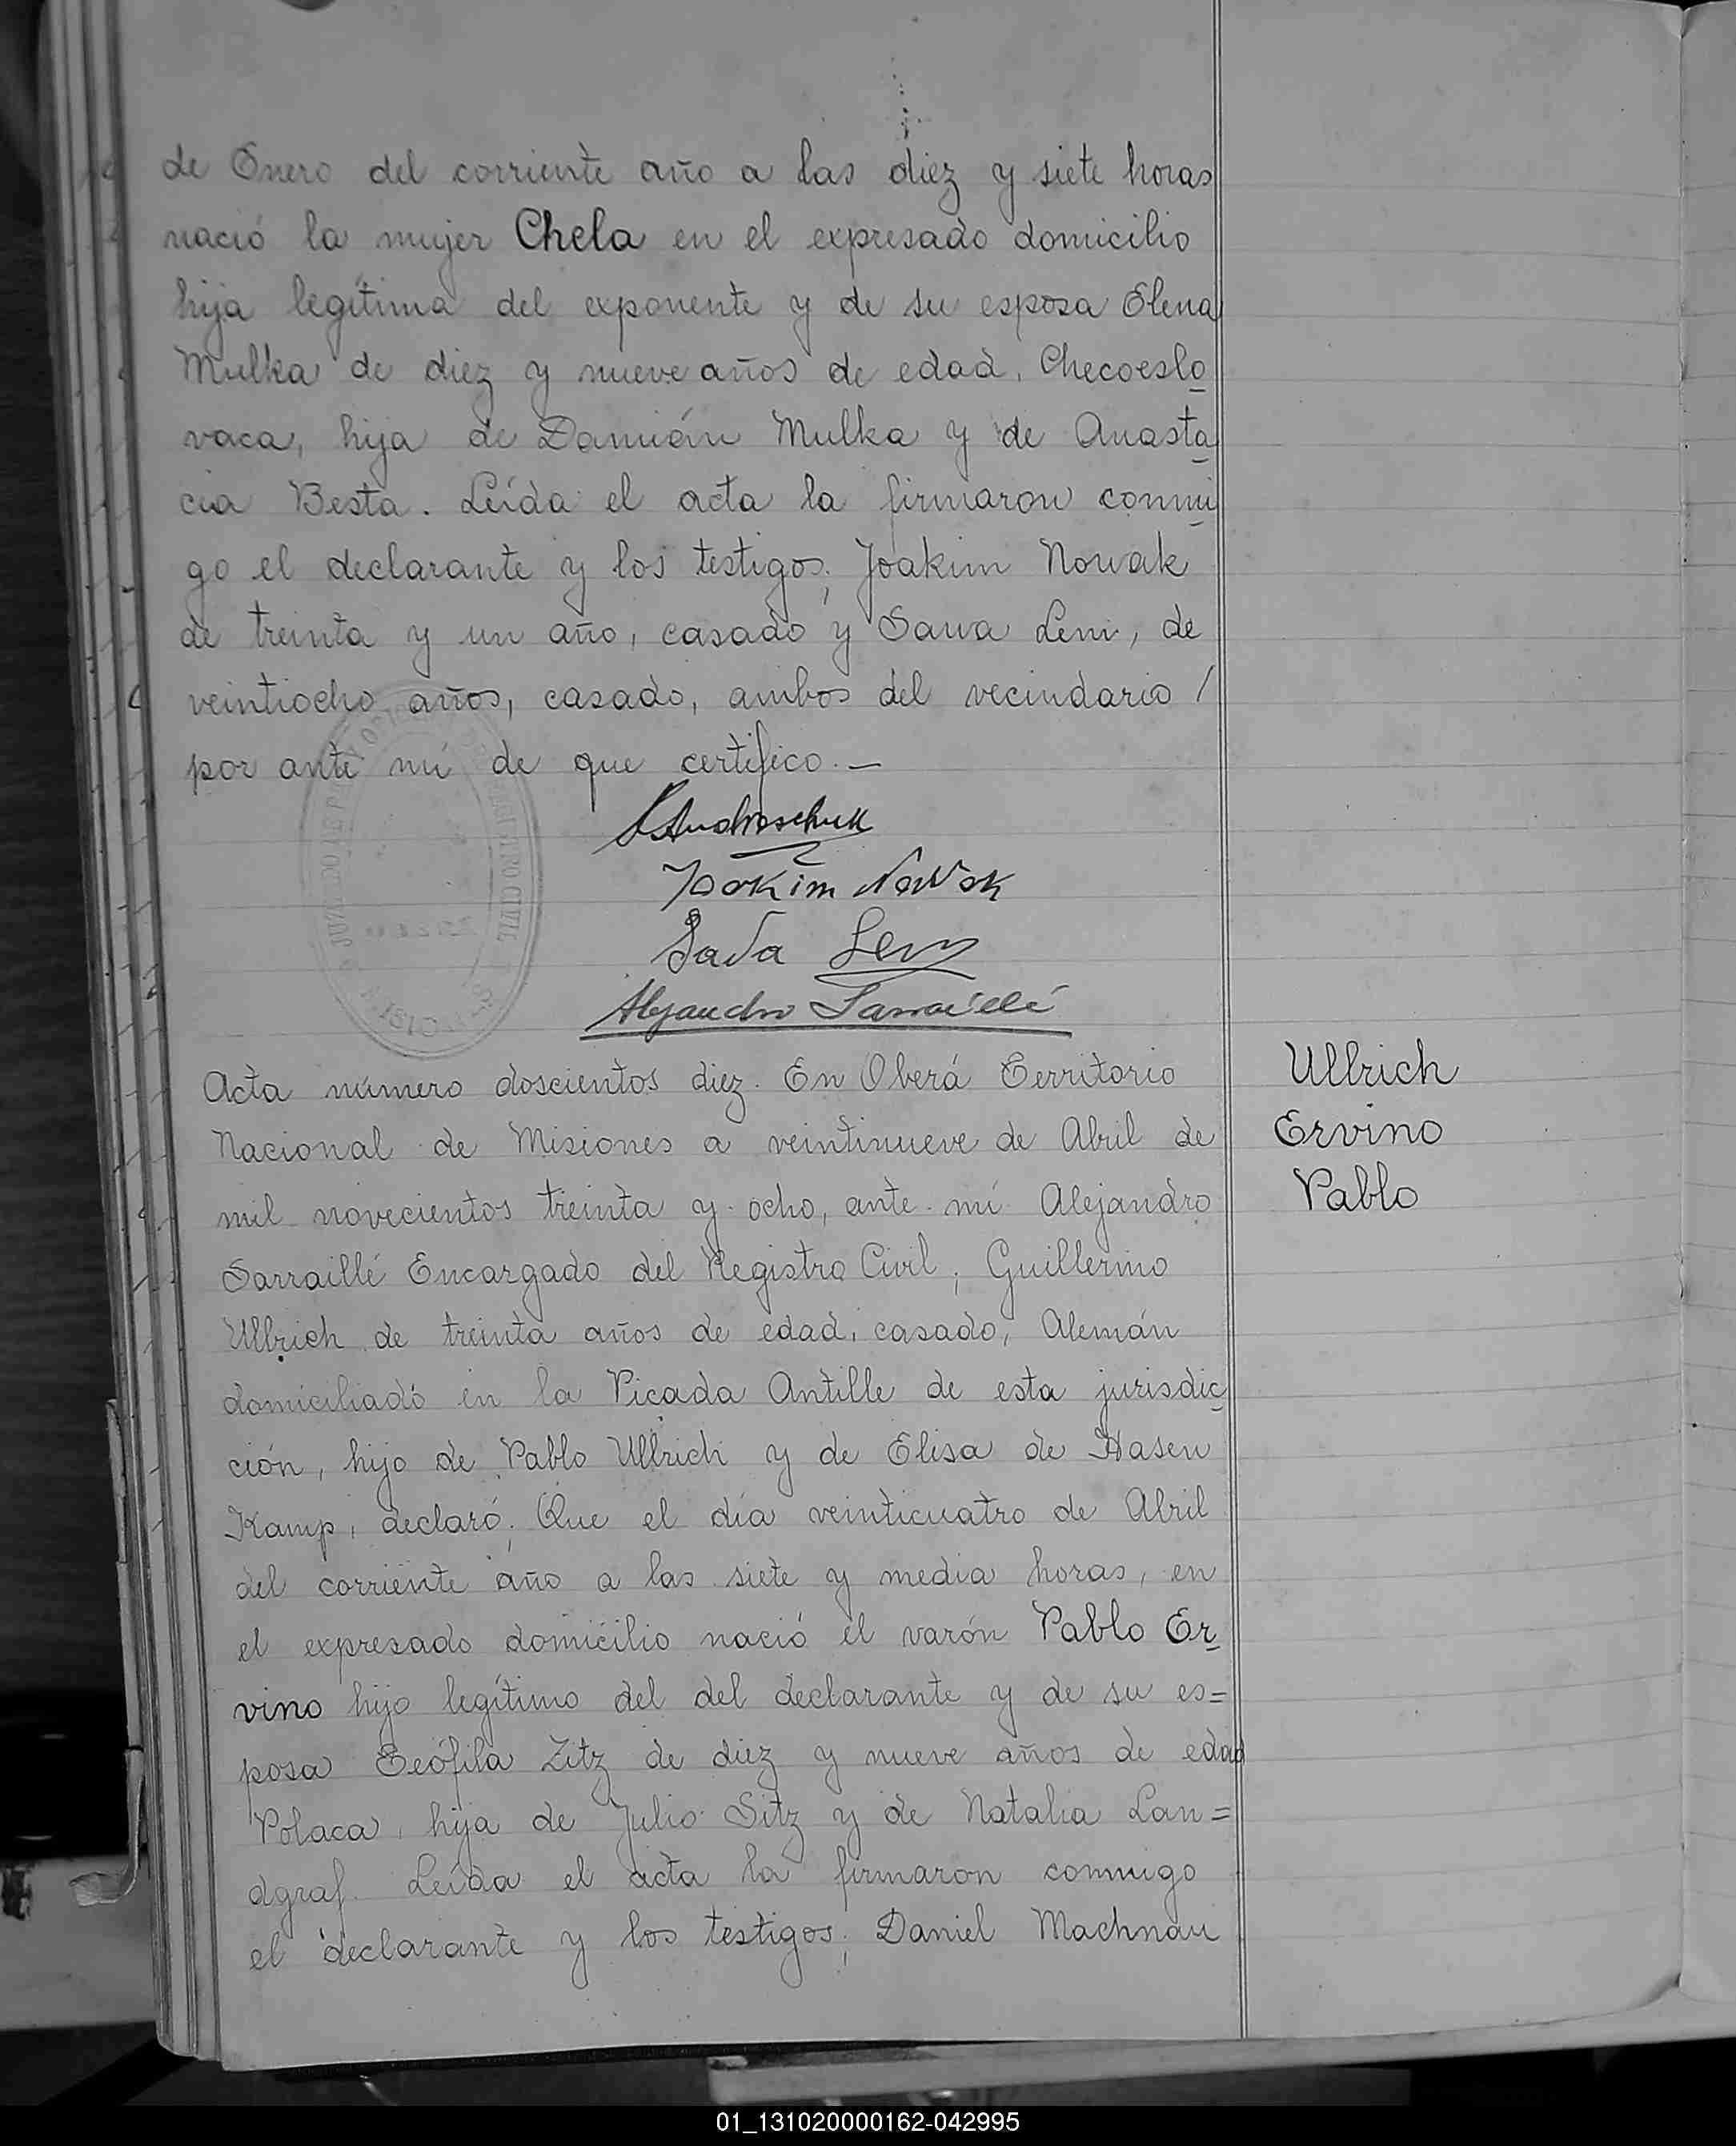 de Enero del corriente año a las diez y siete horas
nació la mujer Chela en el expresado domicilio
hija legítima del exponente y de su esposa Elena
Mulka de diez y nueve años de edad, Checoeslo
vaca, hija de Damián Mulka y de Anasta
cia Besta. Leída el acta la firmaron conmi
go el declarante y los testigos; Joakim Nowak
de treinta y un año, casado y Sawa Lem, de
veintiocho años, casado, ambos del vecindario /
por ante mí de que certifico.—
Joakim Nowak
Sava Lem
Alejandro Sarraillé
Acta número doscientos diez. En Oberá Territorio
Nacional de Misiones a veintinueve de Abril de
mil novecientos treinta y ocho, ante mí Alejandro
Sarraillé Encargado del Registro Civil; Guillermo
Ullrich de treinta años de edad, casado, Alemán
domiciliado en la Picada Antille de esta jurisdic
ción, hijo de Pablo Ullrich y de Elisa de Hasen
Kamp, declaró; Que el día veinticuatro de Abril
del corriente año a las siete y media horas, en
el expresado domicilio nació el varón Pablo Er
vino hijo legítimo del del declarante y de su es=
posa Teófila Zitz de diez y nueve años de edad
Polaca, hija de Julio Sitz y de Natalia Lan=
dgraf. Leída el acta la firmaron conmigo
el declarante y los testigos; Daniel Machnau
Ullrich
Ervino
Pablo
01_131020000162-042995